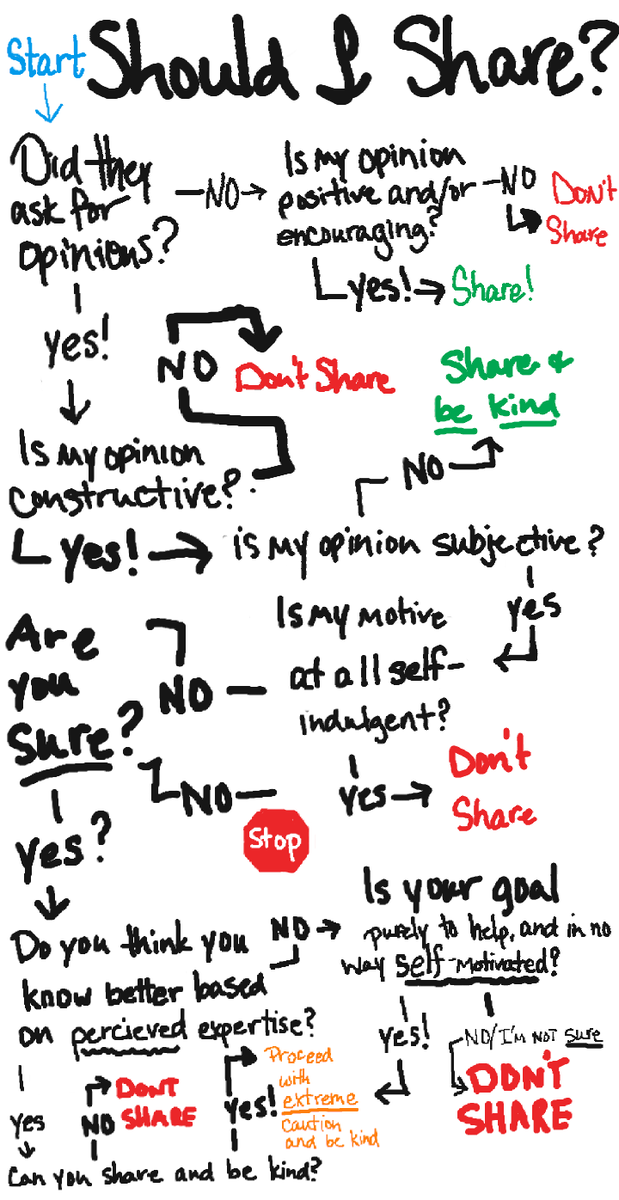 Start
Should I Share?
Did they
ask for
opinions?
NO
Is my opinion
positive and/or
encouraging?
NO
Don't
Share
yes!
Share!
yes!
NO
Don't Share
Share &
be kind
Is my opinion
constructive?
NO
Yes!
is my opinion subjective?
yes
Is my motive
at all self-
indulgent?
NO
Are
you
sure?
NO
Stop
yes
Don't
Share
yes?
Do you think you
know better based
on percieved expertise?
NO
Is your goal
purely to help, and in no
way self-motivated?
yes!
NO/I'm not sure
DON'T
SHARE
Proceed
with
extreme
caution
and be kind
yes!
DON'T
SHARE
NO
yes
Can you share and be kind?